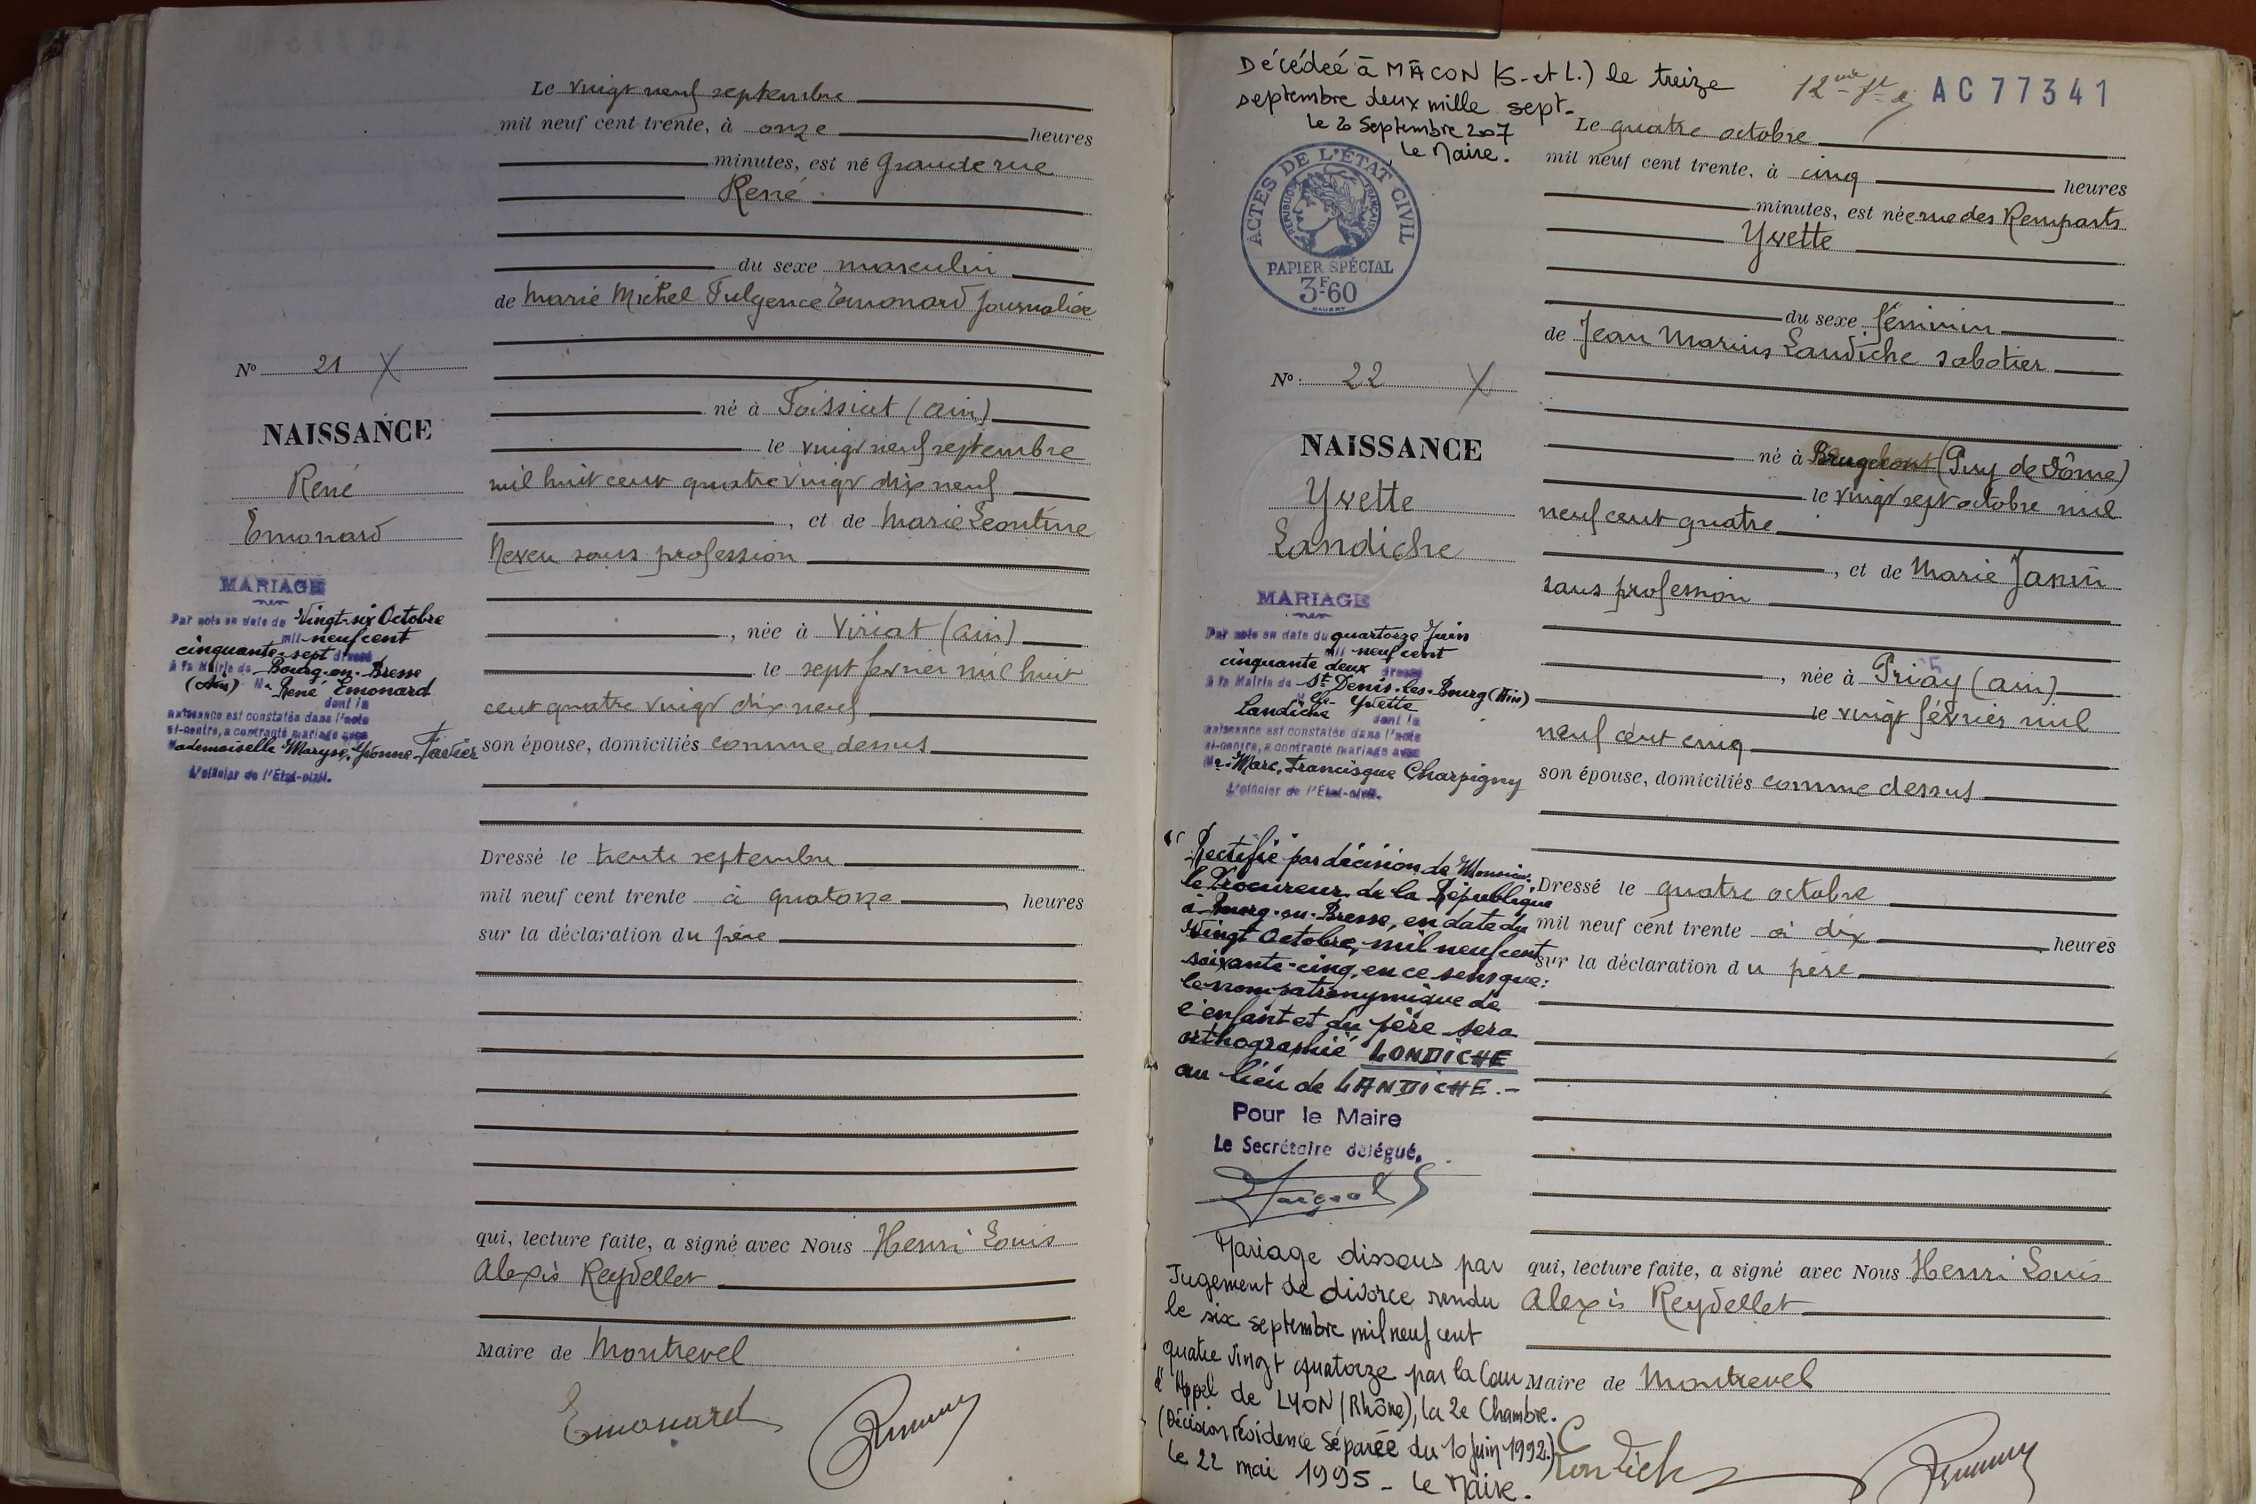 Le vingt neuf septembre
mil neuf cent trente, à onze heures
minutes, est né Grande rue
René
du sexe masculin
de Marie Michel Fulgence Emonard journalier
né à Foissiat (Ain)
le vingt neuf septembre
mil huit cent quatre vingt dix neuf
, et de Marie Léontine
Neveu sans profession
, née à Viriat (Ain)
le sept février mil huit
cent quatre vingt dix neuf
son épouse, domiciliés comme dessus
Dressé le trente septembre
mil neuf cent trente à quatorze heures
sur la déclaration du père
qui, lecture faite, a signé avec Nous Henri Louis
Alexis Reydellet
Maire de Montrevel
Emonard
No 21
NAISSANCE
René
Emonard
MARIAGE
Par acte en date du Vingt-six Octobre
mil neuf cent
cinquante-sept dressé
à la Mairie de Bourg-en-Bresse
(Ain) Mr René Emonard
dont la
naissance est constatée dans l'acte
ci-contre, a contracté mariage avec
Mademoiselle Maryse, Yvonne Favier
L'officier de l'Etat-civil.
Décédée à MÂCON (S-et L.) le treize
septembre deux mille sept.
le 20 Septembre 2007
Le Maire.
ACTES DE L'ÉTAT CIVIL
RÉPUBLIQUE FRANÇAISE
PAPIER SPÉCIAL
3F60
AC77341
Le quatre octobre
mil neuf cent trente, à cinq heures
minutes, est née rue des Remparts
Yvette
du sexe féminin
de Jean Marius Landiche sabotier
né à (Puy de Dôme)
le vingt sept octobre mil
neuf cent quatre
, et de Marie Janin
sans profession
, née à Priay (Ain)
le vingt février mil
neuf cent cinq
son épouse, domiciliés comme dessus
Dressé le quatre octobre
mil neuf cent trente à dix heures
sur la déclaration du père
qui, lecture faite, a signé avec Nous Henri Louis
Alexis Reydellet
Maire de Montrevel
Londiche
No 22
NAISSANCE
Yvette
Landiche
MARIAGE
Par acte en date du quatorze Juin
mil neuf cent
cinquante deux dressé
à la Mairie de St Denis-les-Bourg (Ain)
Landiche Yvette
dont la
naissance est constatée dans l'acte
ci-contre, a contracté mariage avec
Mr Marc, Francisque Charpigny
L'officier de l'Etat-civil.
"Rectifié par décision de Monsieur
le Procureur de la République
à Bourg-en-Bresse, en date du
Vingt Octobre, mil neuf cent
soixante-cinq, en ce sens que:
le nom patronymique de
l'enfant et du père sera
orthographié LONDICHE
au lieu de LANDICHE.-
Pour le Maire
Le Secrétaire délégué.
Mariage dissous par
Jugement de divorce rendu
le six septembre mil neuf cent
quatre vingt quatorze par la Cour
d'Appel de LYON (Rhône), la 2e Chambre.
(Décision résidence séparée du 10 Juin 1992.)
Le 22 mai 1995 - Le Maire.